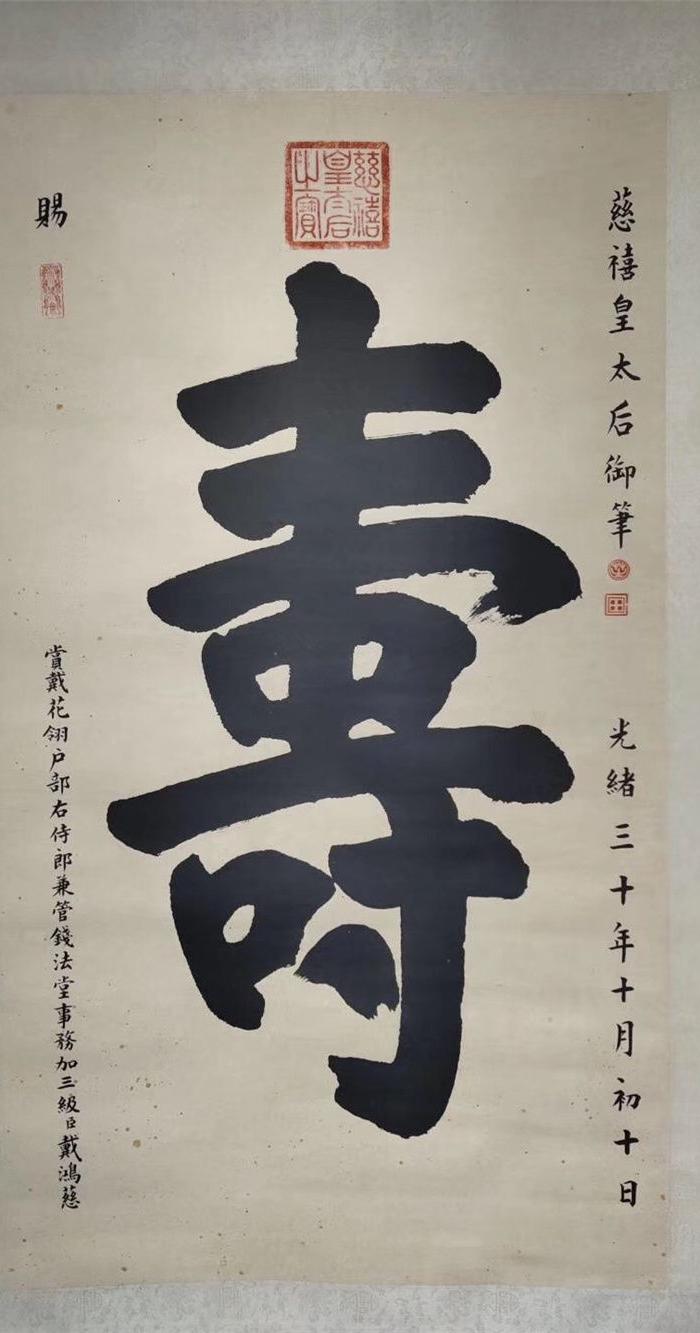 慈禧皇太后御筆
光緒三十年十月初十日
慈禧
皇太后
之寶
壽
賜
賞戴花翎户部右侍郎兼管錢法堂事務加三級臣戴鴻慈